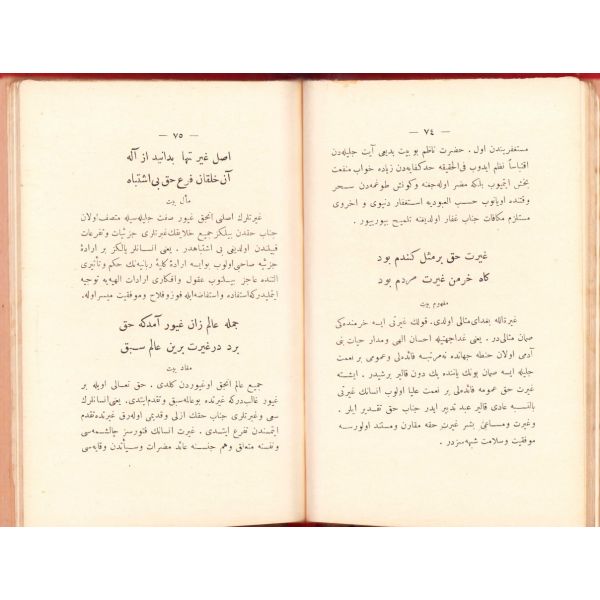 — ٧٤ —
مستغفریندن اول . حضرت ناظم بو بیت بدیعی آیت جلیله‌دن
اقتباساً نظم ایدوب فی‌الحقیقه حدکفایه‌دن زیاده خواب منفعت
بخش ایتمیوب بلکه مضر اوله‌جغنه وکونش طوغمه‌دن سحر
وقتنده اویانوب حسب العبودیه استغفار دنیوی و اخروی
مستلزم مکافات جناب غفار اولدیغنه تلمیح بیورییور .
غیرت حق برمثل کندم بود
کاه خرمن غیرت مردم بود
مفهوم بیت
غیرةالله بغدای مثالی اولدی . قولك غیرتی ایسه خرمنده‌کی
صمان مثالی‌در . یعنی غداجهتیله احسان الهی ومدار حیات بنی
آدمی اولان حنطه جهانده نه‌مرتبه فائده‌لی وعمومی بر نعمت
جلیله ایسه صمان بونك یاننده پك دون قالیر برشیدر . ایشته
غیرت حق عمومه فائده‌لی بر نعمت علیا اولوب انسانك غیرتی
بالنسبه عادی قالیر عبد تدبیر ایدر جناب حق تقدیر ایلر .
وغیرت ومساعئ بشر غیرت حقه مقارن ومستند اولورسه
موفقیت وسلامت شبهه‌سزدر .
— ٧٥ —
اصل غیرتها بدانید از آله
آن خلقان فرع حق بی اشتباه
مآل بیت
غیرتلرك اصلنی آنجق غیور صفت جلیله‌سیله متصف اولان
جناب حقدن بیلکز جمیع خلایقك غیرتلری جزئیات وتفرعات
قبیلندن اولدیغی بی اشتباهدر . یعنی انسانلر یالکز بر ارادۀ
جزئیه صاحبی اولوب بوایسه ارادۀ کلیۀ ربانیه‌نك حکم وتأثیری
آلتنده عاجز بیلنوب عقول وافکاری ارادات الهیه‌یه توجیه
ایتملیدرکه استفاده واستفاضه ایله فوز وفلاح وموفقیت میسر اوله .
جمله عالم زان غیور آمدکه حق
برد در غیرت برین عالم سبق
مفاد بیت
جمیع عالم آنجق اوغیوردن کلدی . حق تعالی اویله بر
غیور غالبدرکه غیرتده بوعالمه سبق وتقدم ایتدی . یعنی انسانلرك
سعی وغیرتلری حقك ازلی وقدیمی اوله‌رق غیرتده تقدم
ایتمسندن تفرع ایتدی . غیرت انسانك فتورسز چالشمه‌سی
ونفسنه متعلق وهم جنسنه عائد مضرات وسیأتدن وقایه‌سی